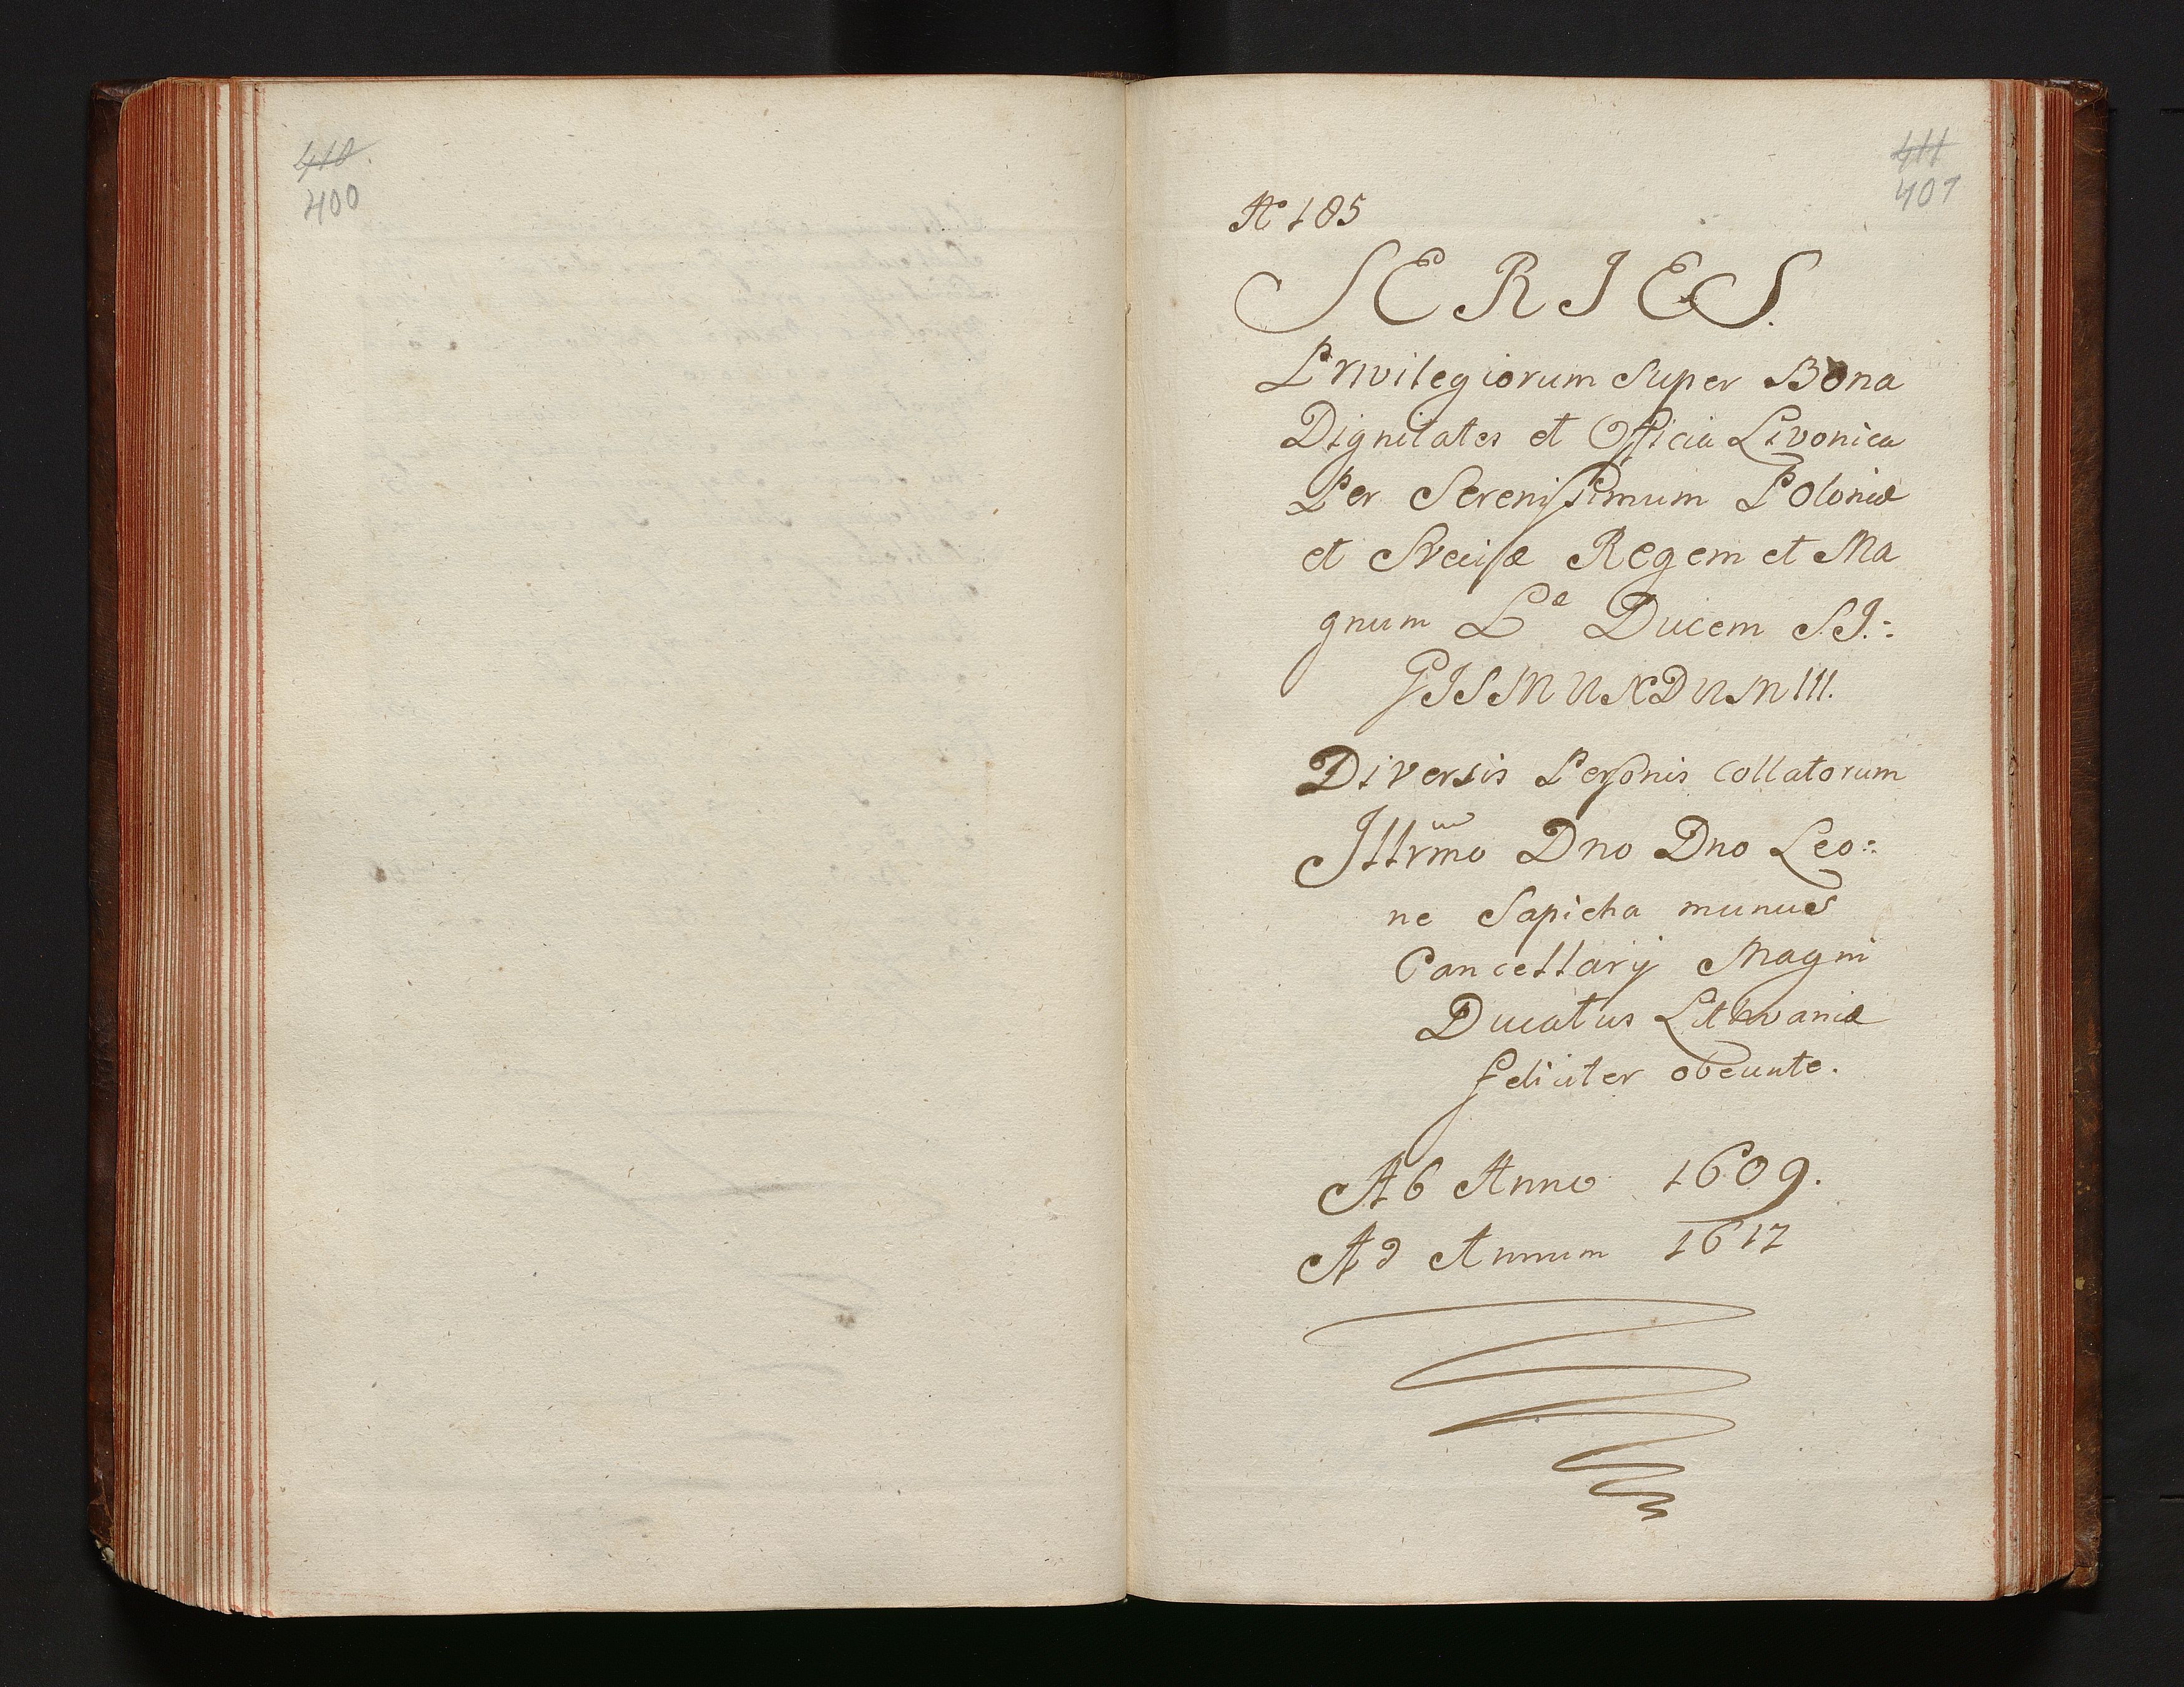 410.
400
411
401
No 185
SERIES.
Privilegiorum Super Bona
Dignitates et Officia Livonica
Per Serenissimum Poloniæ
et Sveciæ Regem et Ma
gnum L^æ Ducem SI.:
GISMUNDUM III.
Diversis Personis collatorum
Illrmo Dno Dno Leo=
ne Sapieha munus
Cancellarij Magni
Ducatus Lithvaniæ
feliciter obeunte.
Ab Anno 1609.
Ad Annum 1617